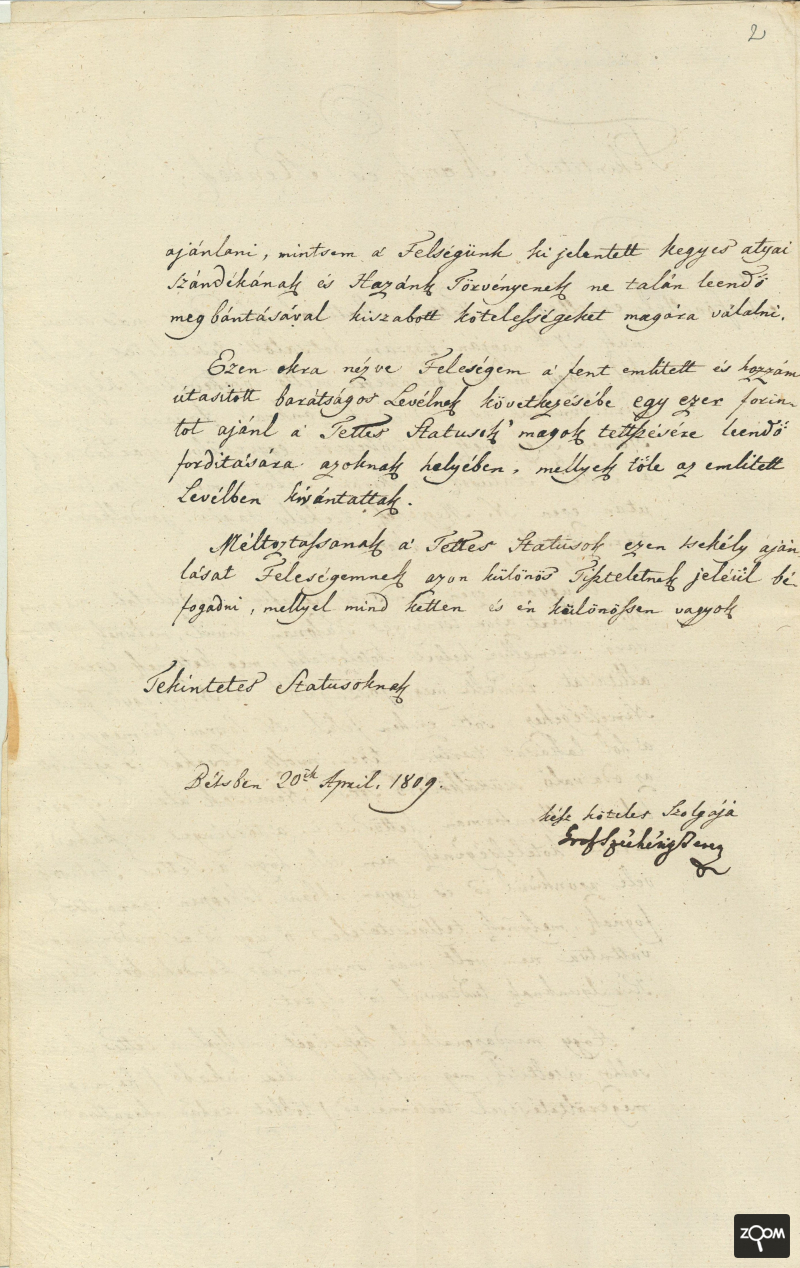 2
ajánlani, mintsem a' Felségünk ki jelentett kegyes atyai
szándékának és Hazánk Törvényenek ne talán leendő
megbántásával kiszabott kötelességeket magára válalni.
Ezen okra nézve Feleségem a' fent emlitett és hozzám
útasitott barátságos Levélnek következésébe egy ezer forin-
tot ajánl a' Tettes Statusok' magok tettzésére leendő
forditására azoknak helyében, mellyek tőle az emlitett
Levélben kivántattak.
Méltoztassanak a' Tettes Statusok ezen tsekély aján
lásat Feleségemnek azon különös Tiszteletnek jeléül bé-
fogadni, mellyel mind ketten és én különössen vagyok
Tekintetes Statusoknak
Bétsben 20ik April. 1809.
kész köteles Szolgája
Gróf Széchényi Ferenz
ZOOM